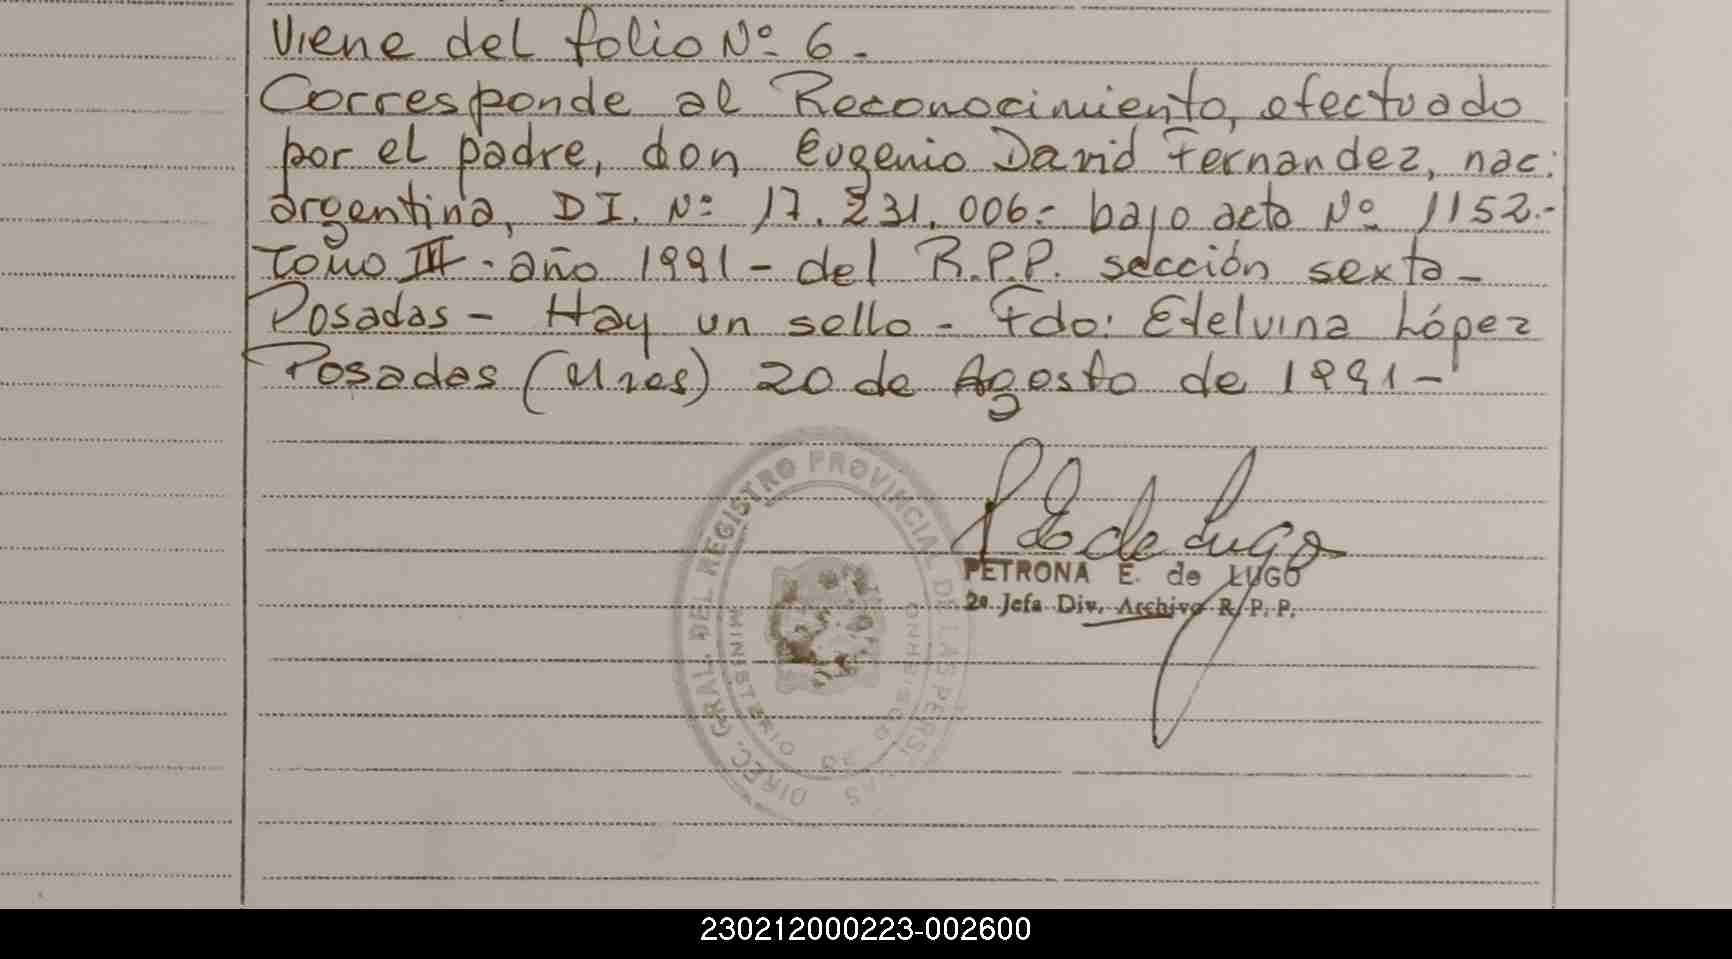 Viene del folio Nº 6.
Corresponde al Reconocimiento, efectuado
por el padre, don Eugenio David Fernandez, nac:
argentina, D I. Nº 17.231.006.- bajo acta Nº 1152.-
Tomo III - año 1991 - del R.P.P. sección sexta -
Posadas - Hay un sello - Fdo: Edelvina López
Posadas (Mnes) 20 de Agosto de 1991 -
P E de Lugo
PETRONA E. de LUGO
2ª Jefa Div. Archivo R. P. P.
DIREC. GRAL. DEL REGISTRO PROVINCIAL DE LAS PERSONAS
MINISTERIO DE GOBIERNO
230212000223-002600